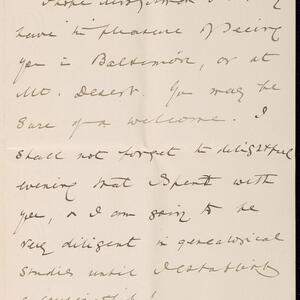 have the pleasure of seeing
you in Baltimore, or at
Mt. Desert. You may be
sure of a welcome. I
shall not forget the delightful
evening that I spent with
you, & I am going to be
very diligent in genealogical
studies until I establish
a cousinship!